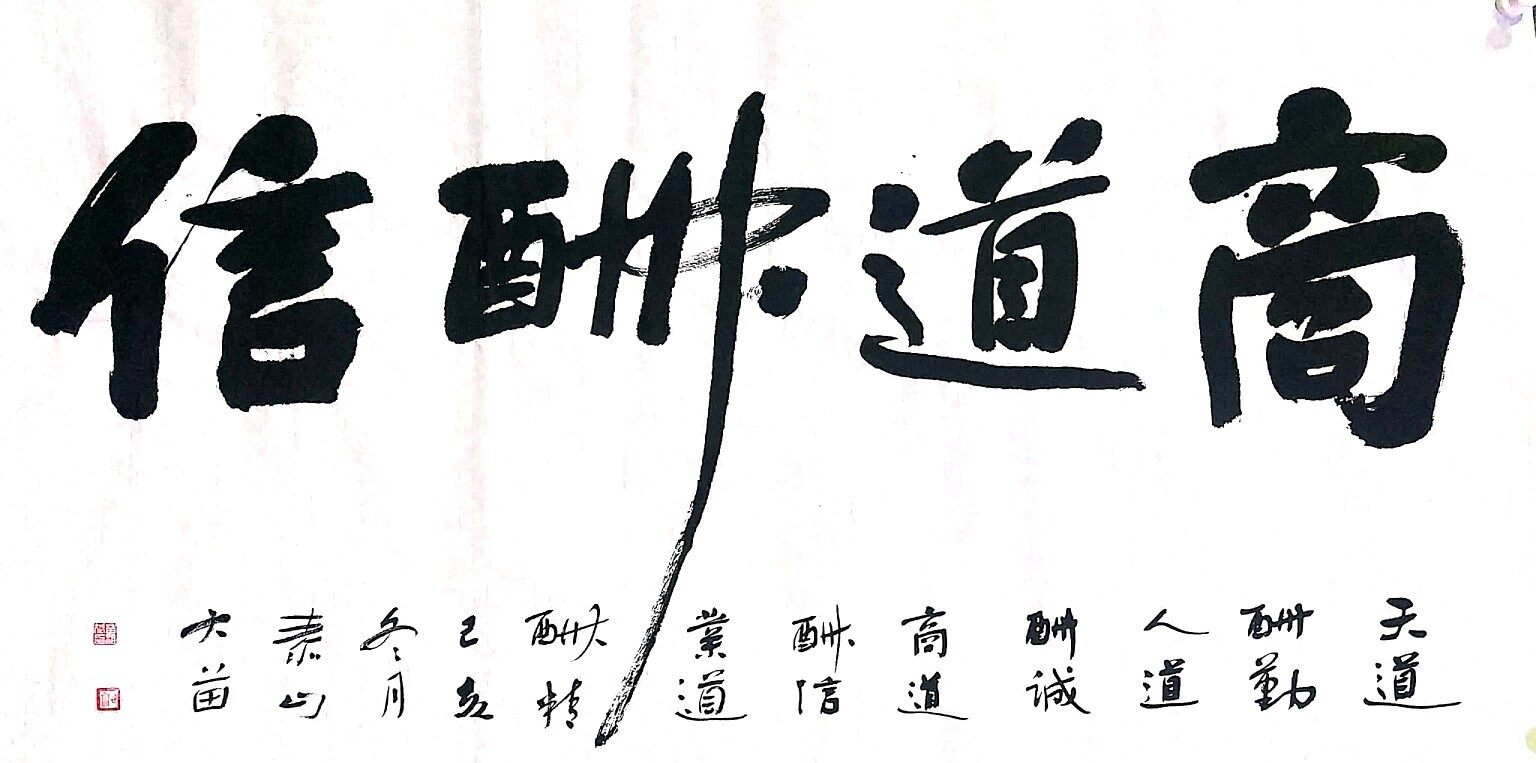 商道酬信
天道
酬勤
人道
酬诚
商道
酬信
業道
酬精
己亥
冬月
泰山
大苗